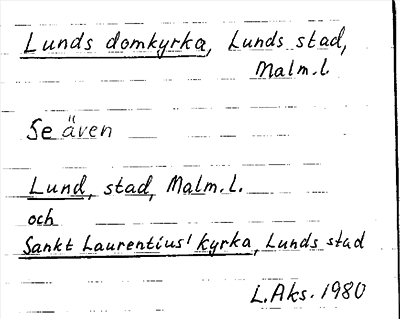 Lunds domkyrka, Lunds stad,
Malm.l.
Se även
Lund, stad, Malm.l.
och
Sankt Laurentius' kyrka, Lunds stad
L.Aks. 1980